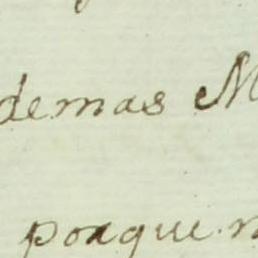 demas M
porque n